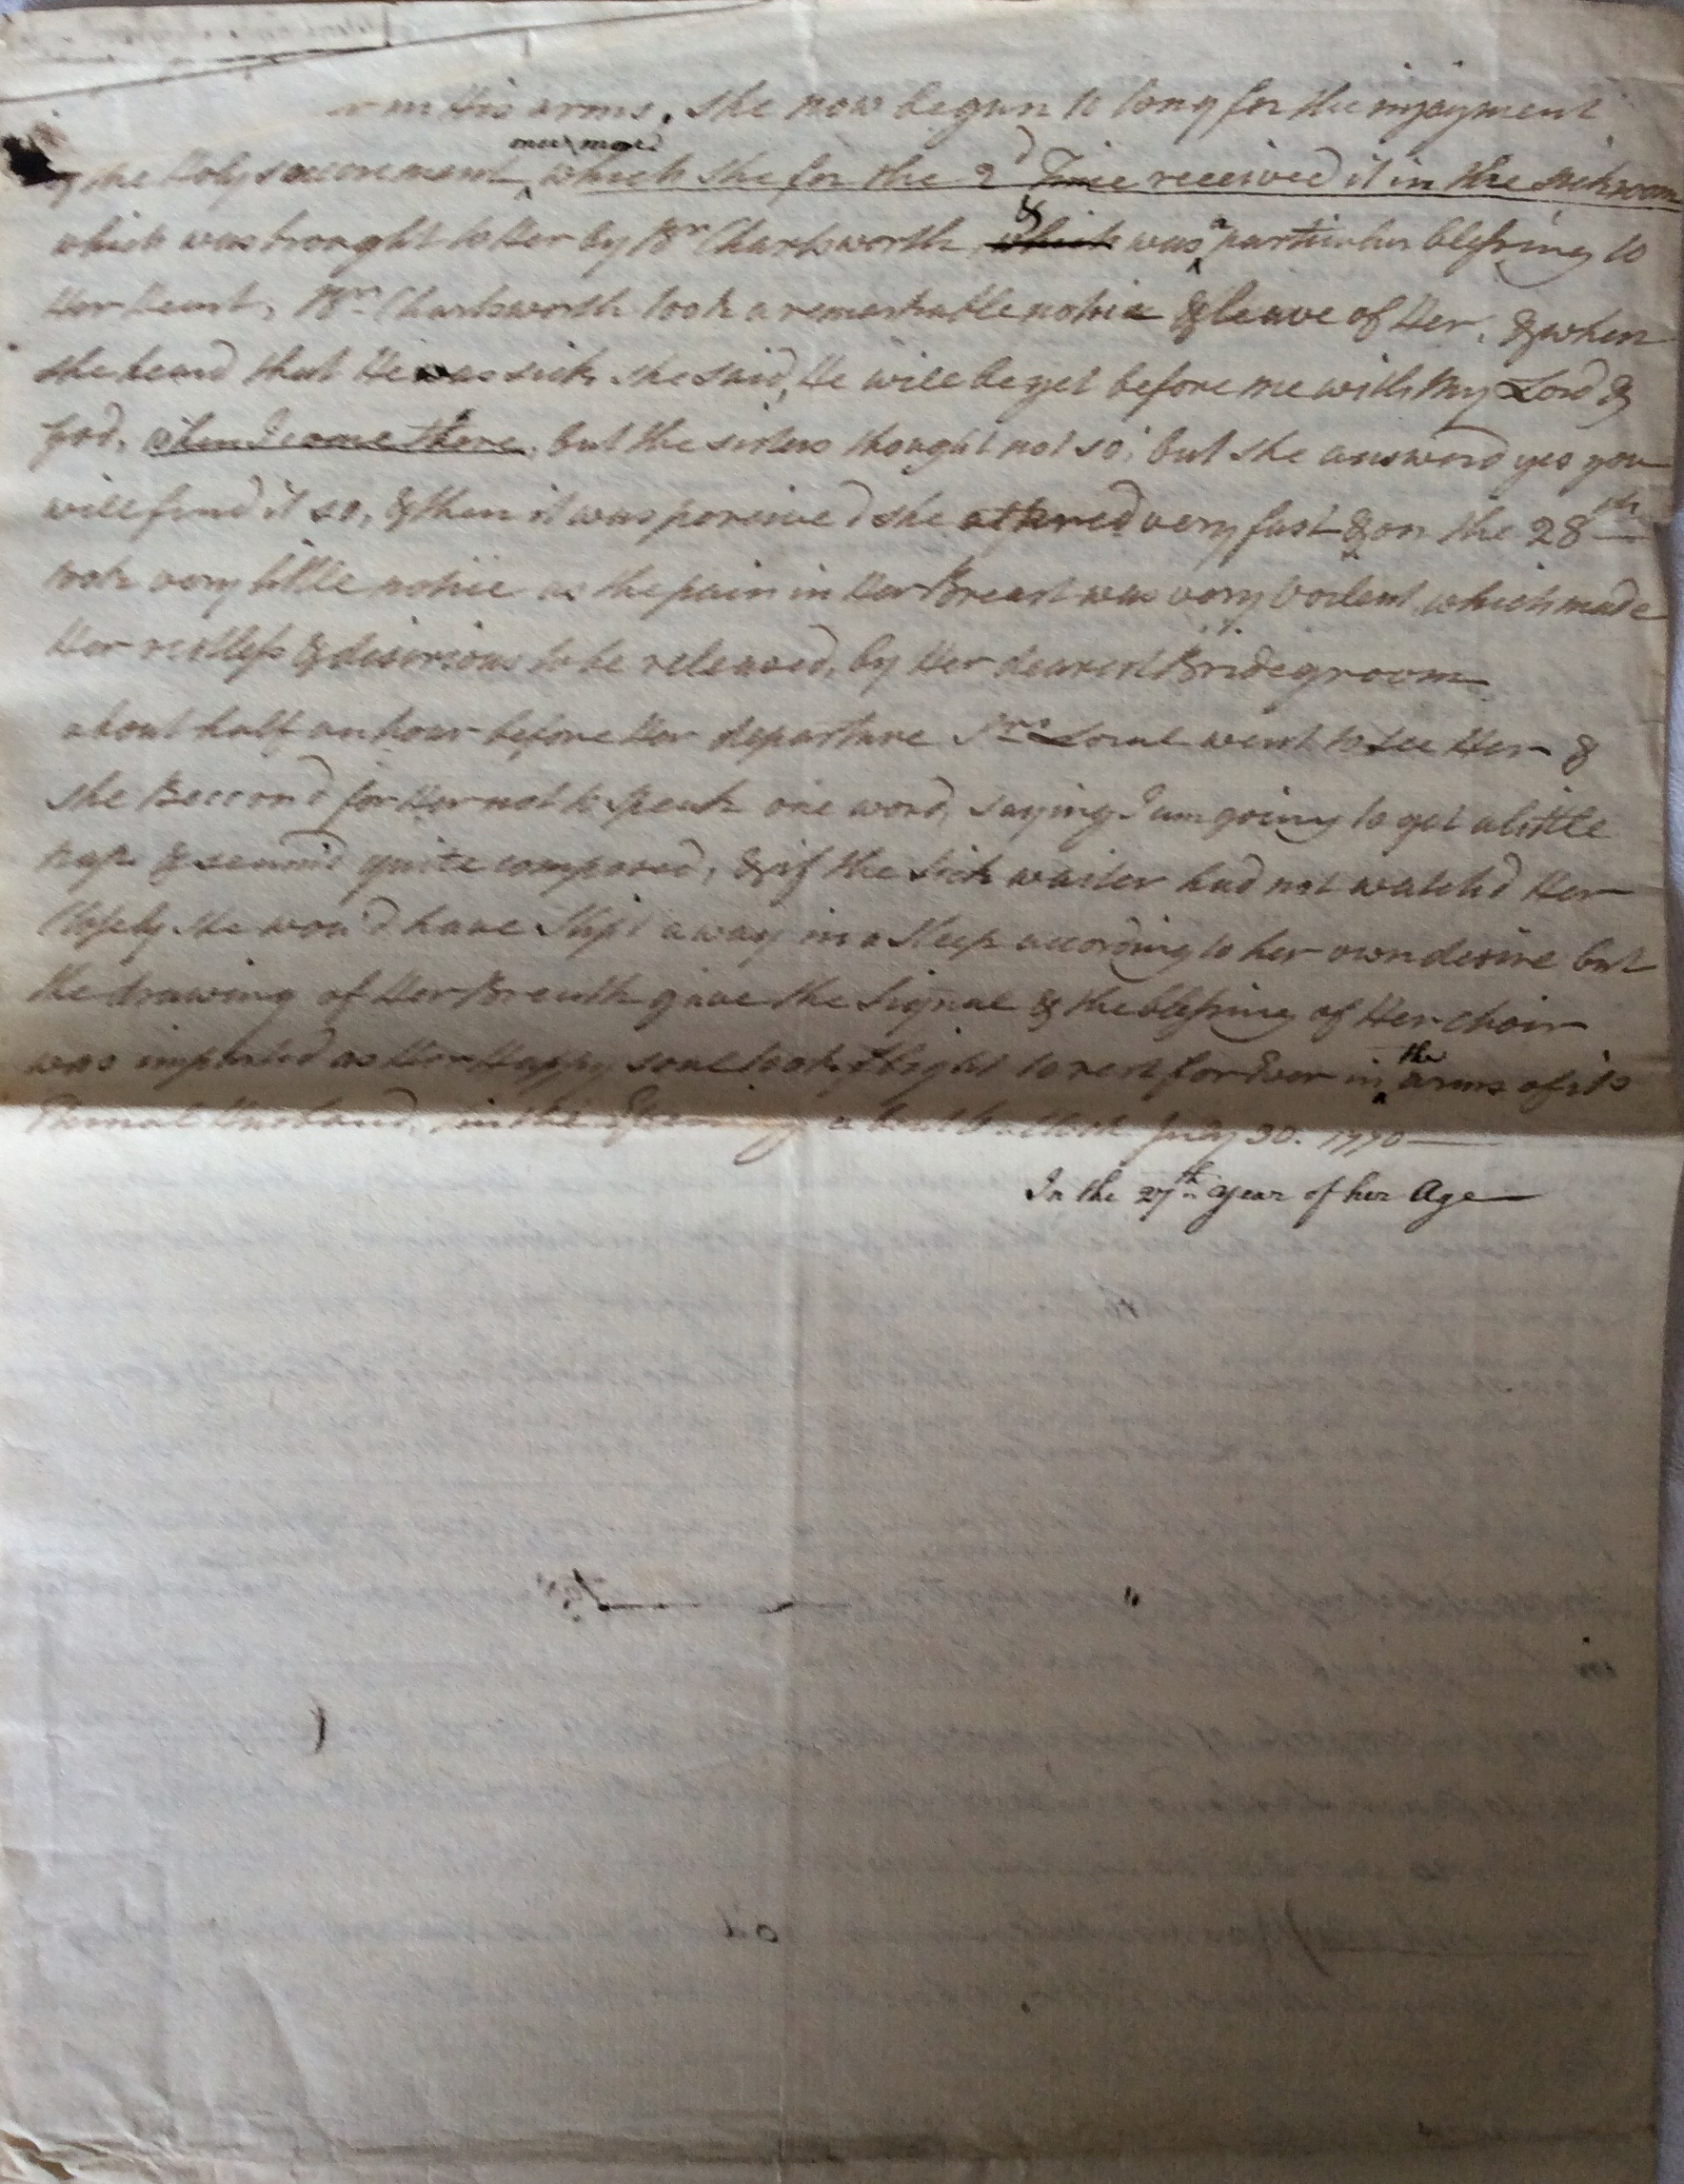 in His arms. she now begun to long for the injoyment
of the Holy sacrement once more which she for the 2d Time received it in the sickroom
which was brought to Her by Br. Charlsworth which & was a particular blessing to
Her Heart, Br. Charlsworth took a remarkable notice & leave of Her, & when
she heard that He was sick she said, He will be yet before me with my Lord &
God, when I come there, but the sisters thought not so, but she answerd yes you
will find it so, & then it was perceived she altered very fast & on the 28th
took very little notice as the pain in Her Breast was very voilent, which made
Her restless & desirious to be released, by Her dearest Bridegroom
about half an hour before Her departure Srs went to see Her &
she Beccond for Her not to speak one word, saying I am going to get a little
nap & seem'd quite composed, & if the sick waiter had not watch'd Her
closely she wou'd have slipt away in a sleep according to her own desire but
the drawing of Her Breath gave the signal & the blessing of Her choir
was imparted as Her Happy soul took flight to rest for Ever in the arms of its
Eternal Husband, in the Evening about o'clock July 30. 1770
In the 27th year of her Age